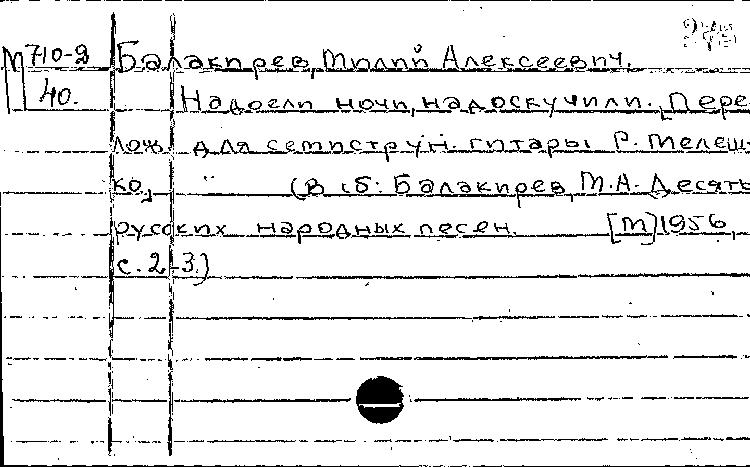 М710-2 Балакирев, Милий Алексеевич.
40. Надоели ночи, надоскучили. [Пере-
лож. для семиструн. гитары Р. Мелеш-
ко] " (В сб: Балакирев, М.А. Десять
русских народных песен. [М] 1956,
с. 2-3.)